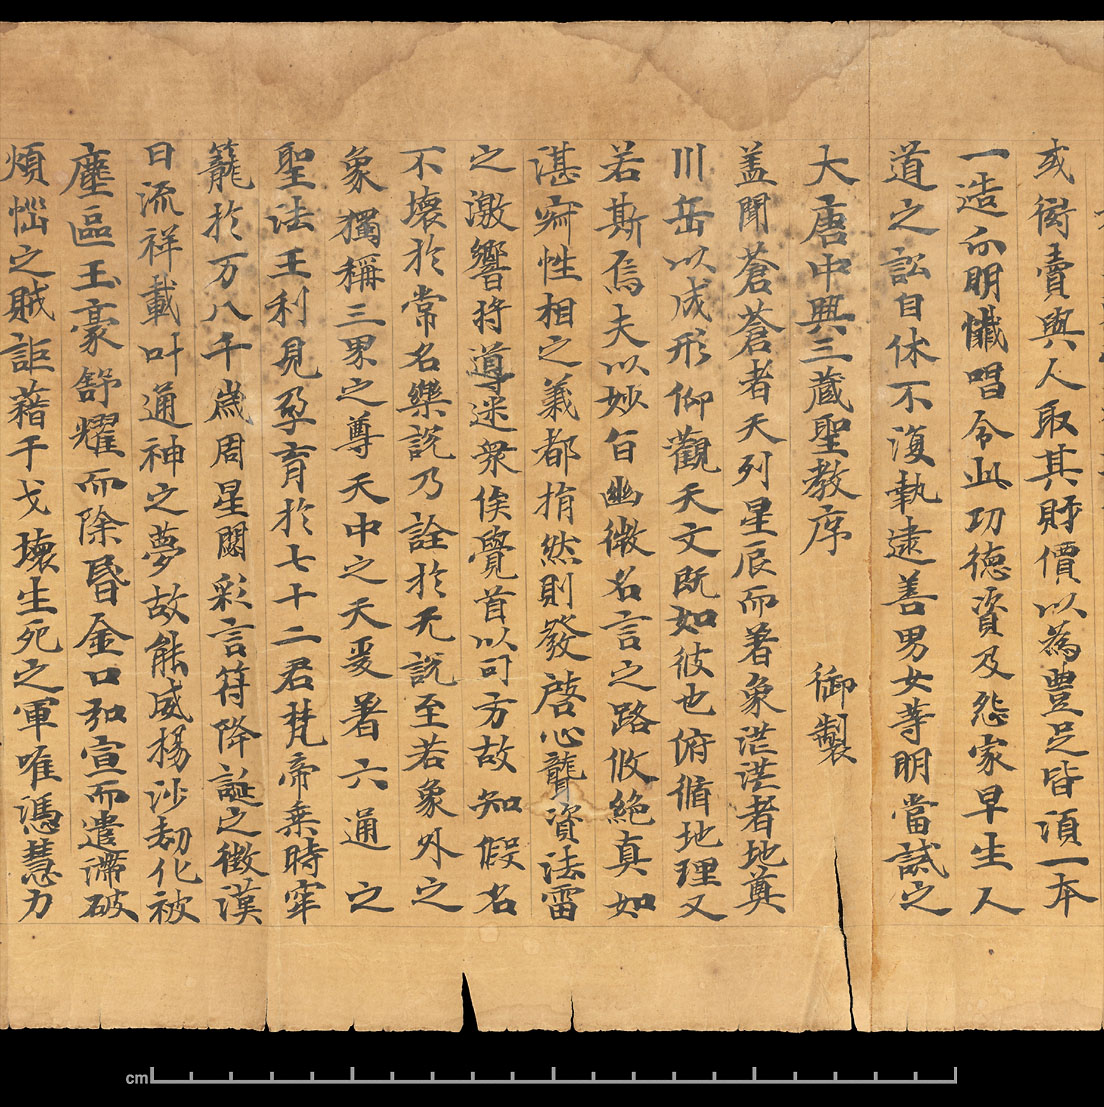 或衒賣與人取其財價以為豐足皆湏一本
一造尒明懺唱令此功德資及怨家早生人
道之訟自休不復執逮善男女等明當誡之
大唐中興三藏聖教序 御製
盖聞蒼蒼者天列星辰而著象茫茫者地奠
川岳以成形仰觀天文既如彼也俯脩地理又
若斯焉夫以妙旨幽微名言之路攸絶真如
湛寂性相之義都捐然則發啓心聾資法雷
之激響将導迷衆俟覺首以司方故知假名
不壞於常名樂說乃詮於无說至若象外之
象獨稱三界之尊天中之天爰著六通之
聖法王利見孕育於七十二君梵帝乗時牢
籠於万八千歳周星閟彩言符降誕之徴漢
日流祥載叶通神之夢故能威楊沙劫化被
塵區玉豪舒耀而除昬金口弘宣而遣滯破
煩惱之賊詎藉干戈壞生死之軍唯憑慧力